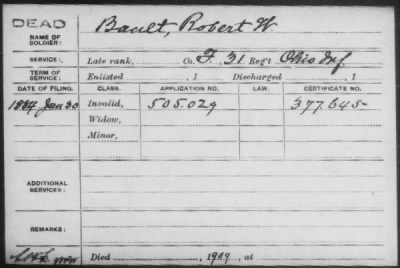 DEAD
NAME OF SOLDIER: Bault, Robert W.
SERVICE: Late rank, Co. F, 31 Reg't Ohio Inf.
TERM OF SERVICE: Enlisted , 1 Discharged , 1
DATE OF FILING. CLASS. APPLICATION NO. LAW. CERTIFICATE NO.
1884 Jan 30 Invalid, 505.029 377.645
Widow,
Minor,
ADDITIONAL SERVICES:
REMARKS:
Died , 1909, at